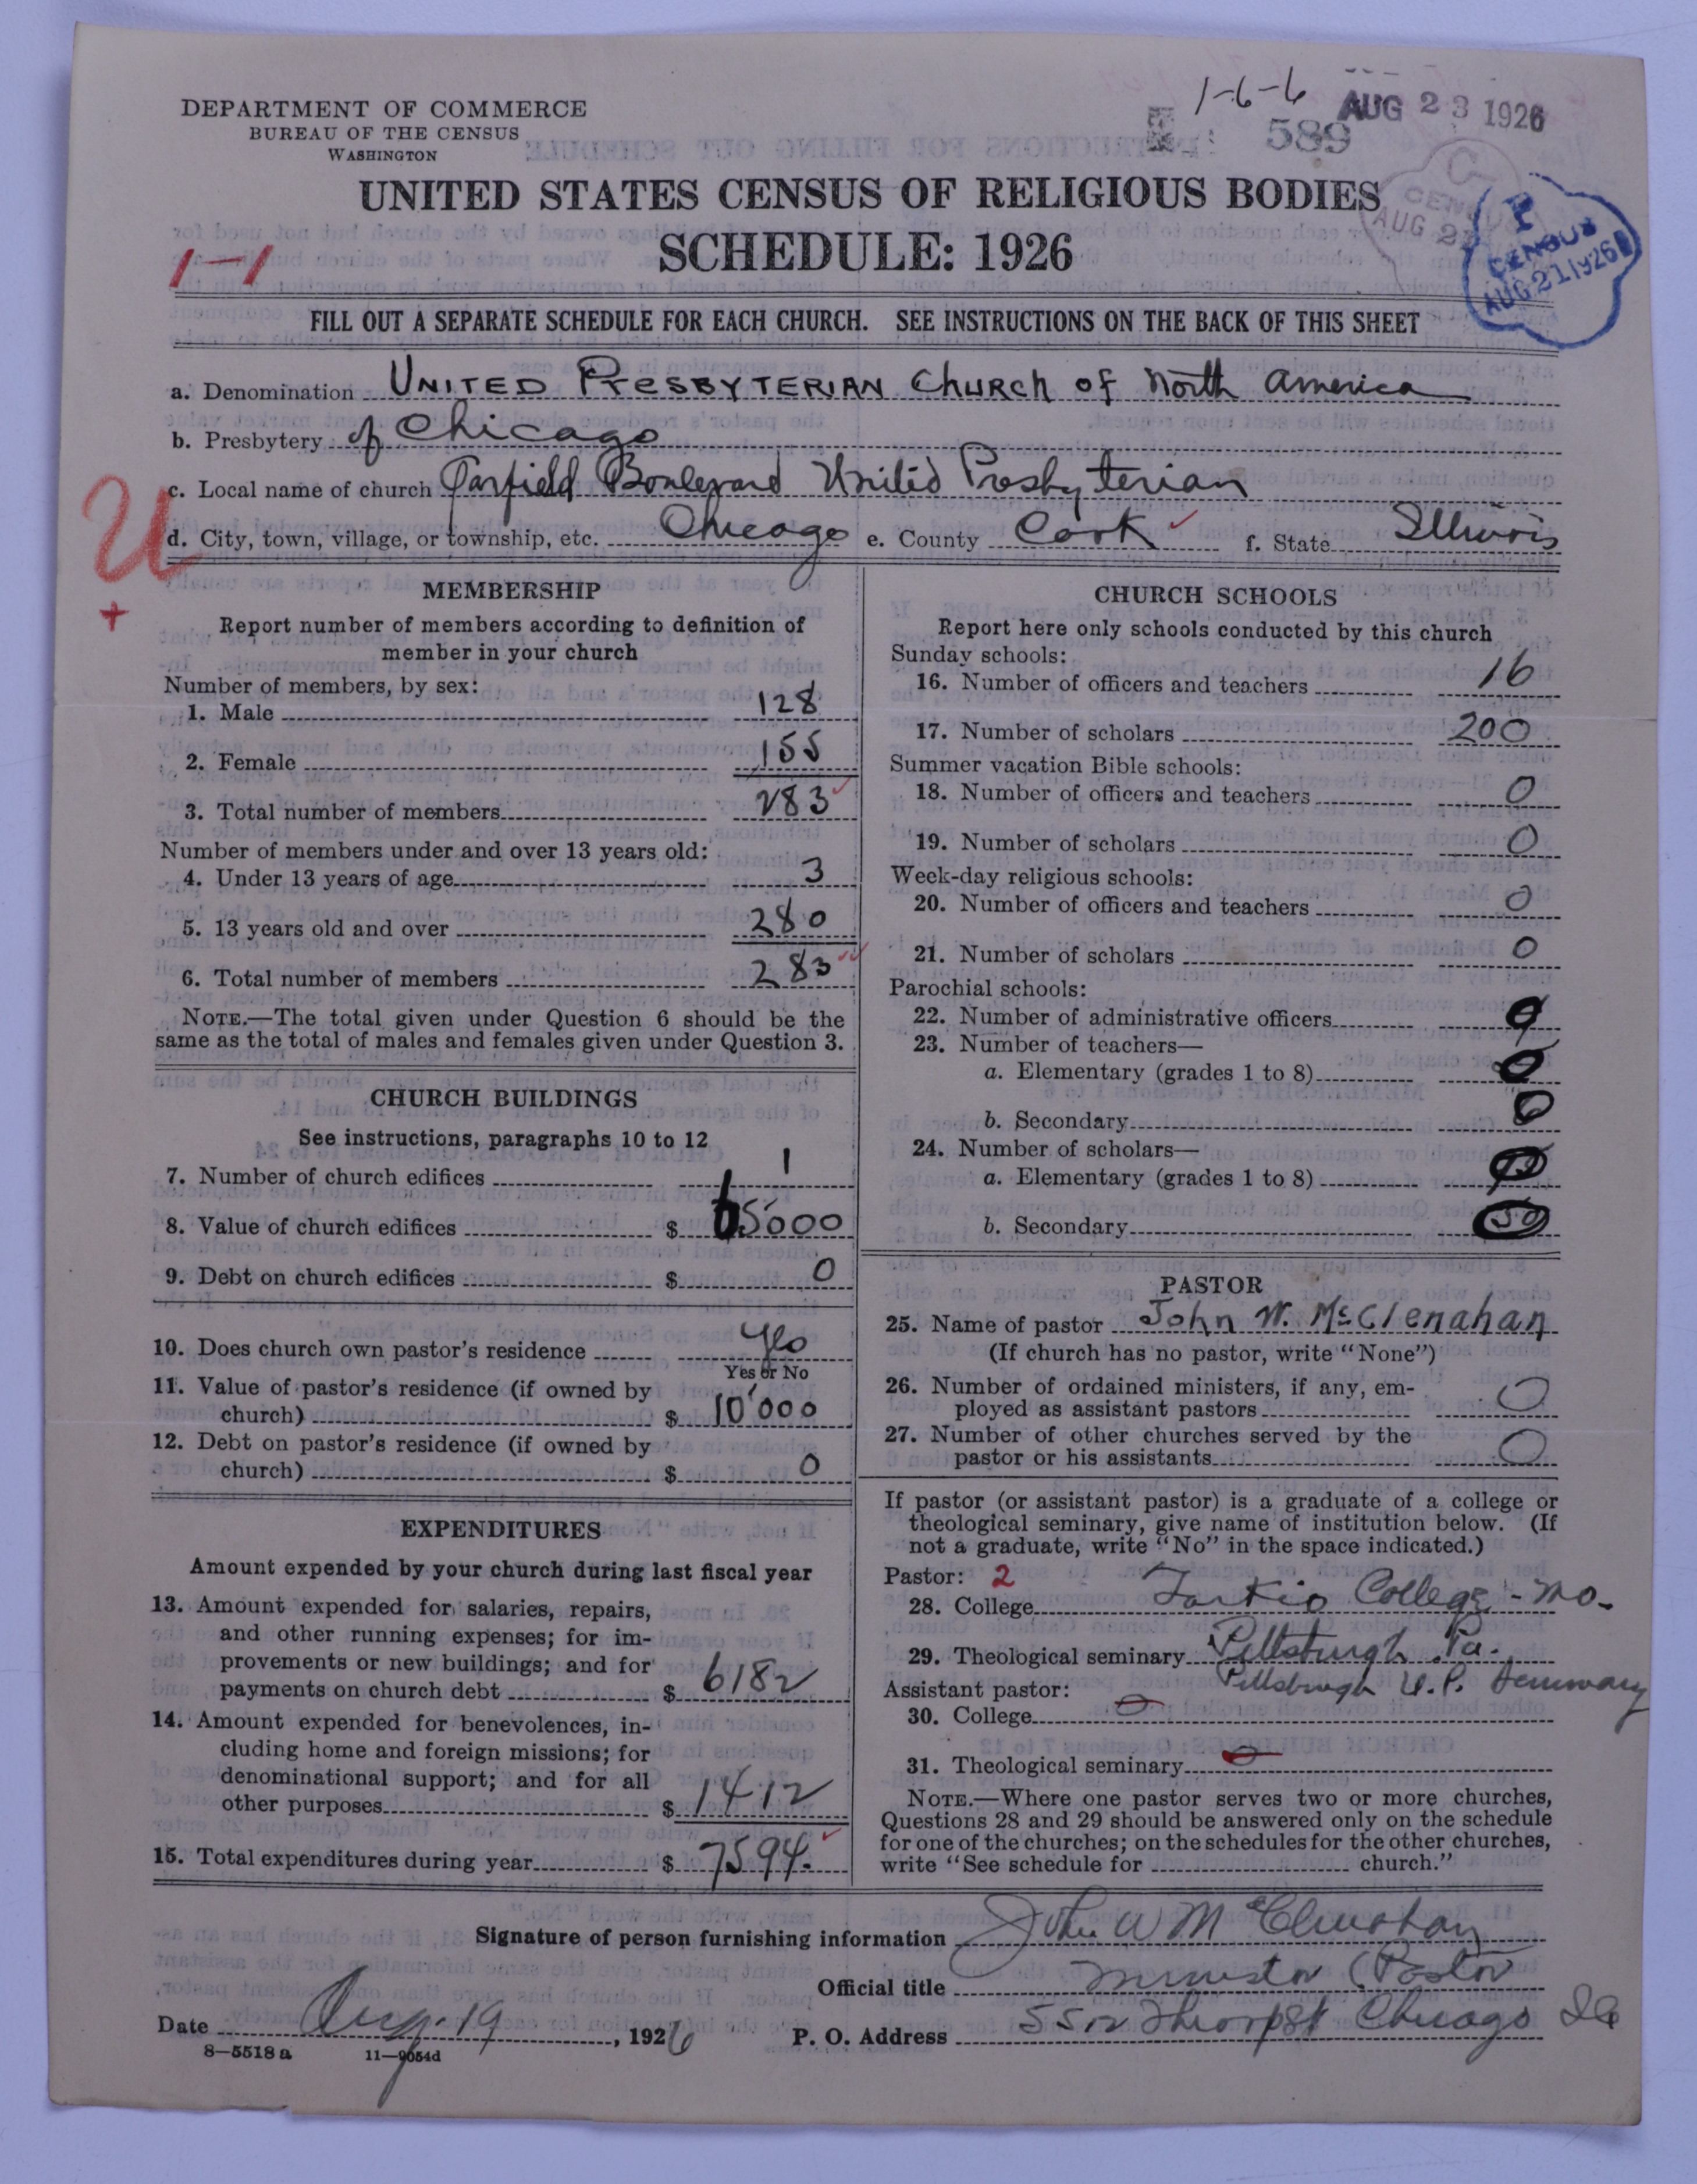 1-6-6
AUG 23 1926
589
DEPARTMENT OF COMMERCE
BUREAU OF THE CENSUS
WASHINGTON
UNITED STATES CENSUS OF RELIGIOUS BODIES
SCHEDULE: 1926
CENSUS
AUG 2
P
CENSUS
AUG 21 1926
1-1
FILL OUT A SEPARATE SCHEDULE FOR EACH CHURCH. SEE INSTRUCTIONS ON THE BACK OF THIS SHEET
a. Denomination UNITED PRESBYTERIAN Church of North America
b. Presbytery of Chicago
c. Local name of church Garfield Boulevard United Presbyterian
d. City, town, village, or township, etc. Chicago e. County Cook f. State Illinois
U
+
MEMBERSHIP
Report number of members according to definition of
member in your church
Number of members, by sex:
1. Male 128
2. Female 155
3. Total number of members 283
Number of members under and over 13 years old:
4. Under 13 years of age 3
5. 13 years old and over 280
6. Total number of members 283
NOTE.—The total given under Question 6 should be the
same as the total of males and females given under Question 3.
CHURCH BUILDINGS
See instructions, paragraphs 10 to 12
7. Number of church edifices 1
8. Value of church edifices $ 65000
9. Debt on church edifices $ 0
10. Does church own pastor's residence yes
Yes or No
11. Value of pastor's residence (if owned by
church) $ 10'000
12. Debt on pastor's residence (if owned by
church) $ 0
EXPENDITURES
Amount expended by your church during last fiscal year
13. Amount expended for salaries, repairs,
and other running expenses; for im-
provements or new buildings; and for
payments on church debt $ 6182
14. Amount expended for benevolences, in-
cluding home and foreign missions; for
denominational support; and for all
other purposes $ 1412
15. Total expenditures during year $ 7594.
CHURCH SCHOOLS
Report here only schools conducted by this church
Sunday schools:
16. Number of officers and teachers 16
17. Number of scholars 200
Summer vacation Bible schools:
18. Number of officers and teachers 0
19. Number of scholars 0
Week-day religious schools:
20. Number of officers and teachers 0
21. Number of scholars 0
Parochial schools:
22. Number of administrative officers 0
23. Number of teachers—
a. Elementary (grades 1 to 8) 0
b. Secondary 0
24. Number of scholars—
a. Elementary (grades 1 to 8)
b. Secondary
PASTOR
25. Name of pastor John W. McClenahan
(If church has no pastor, write "None")
26. Number of ordained ministers, if any, em-
ployed as assistant pastors 0
27. Number of other churches served by the
pastor or his assistants 0
If pastor (or assistant pastor) is a graduate of a college or
theological seminary, give name of institution below. (If
not a graduate, write "No" in the space indicated.)
Pastor: 2
28. College Tarkio College - Mo.
29. Theological seminary Pittsburgh Pa.
Pittsburgh U.P. Seminary
Assistant pastor:
30. College 0
31. Theological seminary 0
NOTE.—Where one pastor serves two or more churches,
Questions 28 and 29 should be answered only on the schedule
for one of the churches; on the schedules for the other churches,
write "See schedule for church."
Signature of person furnishing information John W McClenahan
Official title Minister (Pastor
Date Aug. 19, 1926 P. O. Address 5512 Throop St Chicago Ill
8—5518a 11—9054d